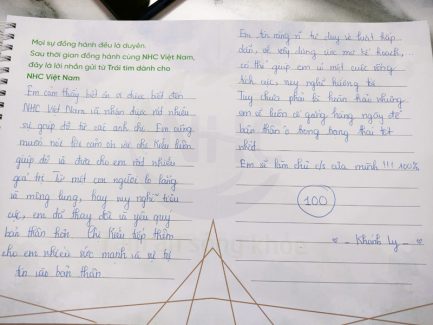 Mọi sự đồng hành đều là duyên.
Sau thời gian đồng hành cùng NHC Việt Nam,
đây là lời nhắn gửi từ Trái tim dành cho
NHC Việt Nam
Em cảm thấy biết ơn vì được biết đến
NHC Việt Nam và nhận được rất nhiều
sự giúp đỡ từ các anh chị. Em cũng
muốn nói lời cảm ơn với chị Kiều luôn
giúp đỡ và đưa cho em rất nhiều
giá trị. Từ một con người lo lắng
và mông lung, hay suy nghĩ tiêu
cực, em đã thay đổi và yêu quý
bản thân hơn. Chị Kiều tiếp thêm
cho em nhiều sức mạnh và sự tự
tin vào bản thân
Em tin rằng vì tư duy và luật hấp
dẫn, về xây dựng ước mơ kế hoạch,...
có thể giúp em có một cuộc sống
tích cực, suy nghĩ hướng
Tuy chưa phải là hoàn hảo nhưng
em sẽ luôn cố gắng hàng ngày để
bản thân trong trạng thái tốt
nhất.
Em sẽ làm chủ c/s của mình !!! 100%
100
- Khánh Ly -